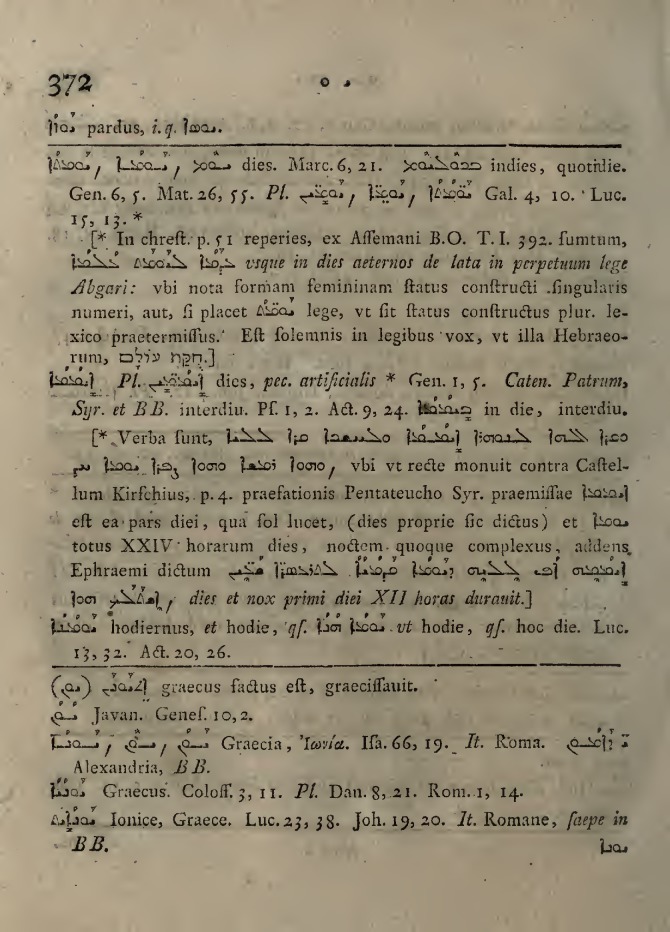 372 ܝ ܘ
pardus, i. q.
ܝܘܡ, ܝܘܡܐ, ܝܘܡܬܐ dies. Marc. 6, 21. ܒܟܠܝܘܡ indies, quotidie.
Gen. 6, 5. Mat. 26, 55. Pl. ܝܘܡܝܢ, ܝܘܡܐ, ܝܘܡܬܐ Gal. 4, 10. Luc.
15, 13. *
[* In chreſt. p. 51 reperies, ex Aſſemani B.O. T. I. 392. ſumtum,
vsque in dies aeternos de lata in perpetuum lege
Abgari: vbi nota formam femininam ſtatus conſtructi ſingularis
numeri, aut, ſi placet ܝܘܡܬ lege, vt ſit ſtatus conſtructus plur. le-
xico praetermiſſus. Eſt ſolemnis in legibus vox, vt illa Hebraeo-
rum, חקת עולם.]
ܐܝܡܡܐ Pl. ܐܝܡܡܝܢ dies, pec. artificialis * Gen. 1, 5. Caten. Patrum,
Syr. et BB. interdiu. Pſ. 1, 2. Act. 9, 24. ܒܐܝܡܡܐ in die, interdiu.
[* Verba ſunt, ܘܩܪܐ ܐܠܗܐ ܠܢܘܗܪܐ ܐܝܡܡܐ ܘܠܚܫܘܟܐ ܩܪܐ ܠܠܝܐ
ܘܗܘܐ ܪܡܫܐ ܘܗܘܐ ܨܦܪܐ ܝܘܡܐ ܚܕ, vbi vt recte monuit contra Caſtel-
lum Kirſchius, p. 4. praefationis Pentateucho Syr. praemiſſae ܐܝܡܡܐ
eſt ea pars diei, qua ſol lucet, (dies proprie ſic dictus) et ܝܘܡܐ
totus XXIV horarum dies, noctem quoque complexus, addens
Ephraemi dictum ܐܝܡܡܗ ܐܦ ܠܠܝܗ ܕܝܘܡܐ ܩܕܡܝܐ
dies et nox primi diei XII horas durauit.]
ܝܘܡܢܐ hodiernus, et hodie, qſ. ܝܘܡܐ ܗܢܐ vt hodie, qſ. hoc die. Luc.
13, 32. Act. 20, 26.
(ܝܘܢ) graecus factus eſt, graeciſſauit.
ܝܘܢ Javan. Geneſ. 10, 2.
Graecia, Ἰωνία. Iſa. 66, 19. It. Roma.
Alexandria, BB.
ܝܘܢܝܐ Graecus. Coloſſ. 3, 11. Pl. Dan. 8, 21. Rom. 1, 14.
ܝܘܢܐܝܬ Ionice, Graece. Luc. 23, 38. Joh. 19, 20. It. Romane, ſaepe in
BB. ܝܘܢܐ